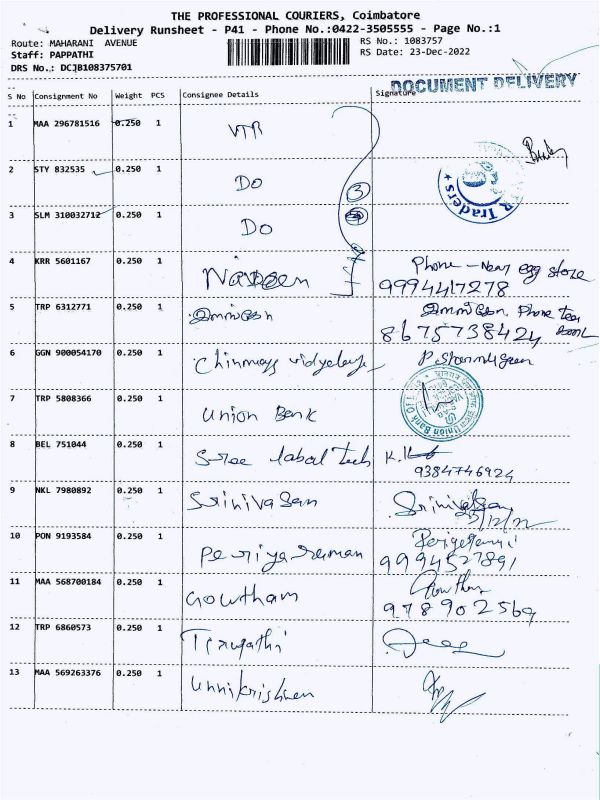 THE PROFESSIONAL COURIERS, Coimbatore
Delivery Runsheet - P41 - Phone No.:0422-3505555 - Page No.:1
Route: MAHARANI AVENUE
Staff: PAPPATHI
DRS No.: DCJB108375701
RS No.: 1083757
RS Date: 23-Dec-2022
DOCUMENT DELIVERY
S No Consignment No Weight PCS Consignee Details Signature
1 MAA 296781516 0.250 1 VTR
2 STY 832535 0.250 1 DO
3
Traders
3 SLM 310032712 0.250 1 DO
4 KRR 5601167 0.250 1 Naveen Phone - Near egg store
9994417278
5 TRP 6312771 0.250 1 Phone
8675738424
6 GGN 900054170 0.250 1 Chinmaya vidyalaya
7 TRP 5808366 0.250 1 Union Bank
Union Bank Of
8 BEL 751044 0.250 1 Sree label Tech
9384746924
9 NKL 7980892 0.250 1 Srinivasan Srinivasan
23/12/22
10 PON 9193584 0.250 1 Periyaraman
9994527891
11 MAA 568700184 0.250 1 Gowtham Gowtham
978902569
12 TRP 6860573 0.250 1 Tirupathi
13 MAA 569263376 0.250 1 Unnikrishnan